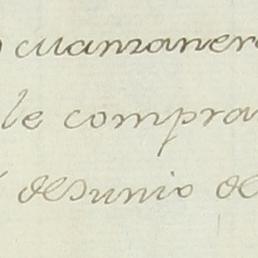 cuanzanero
le compra
desunio de